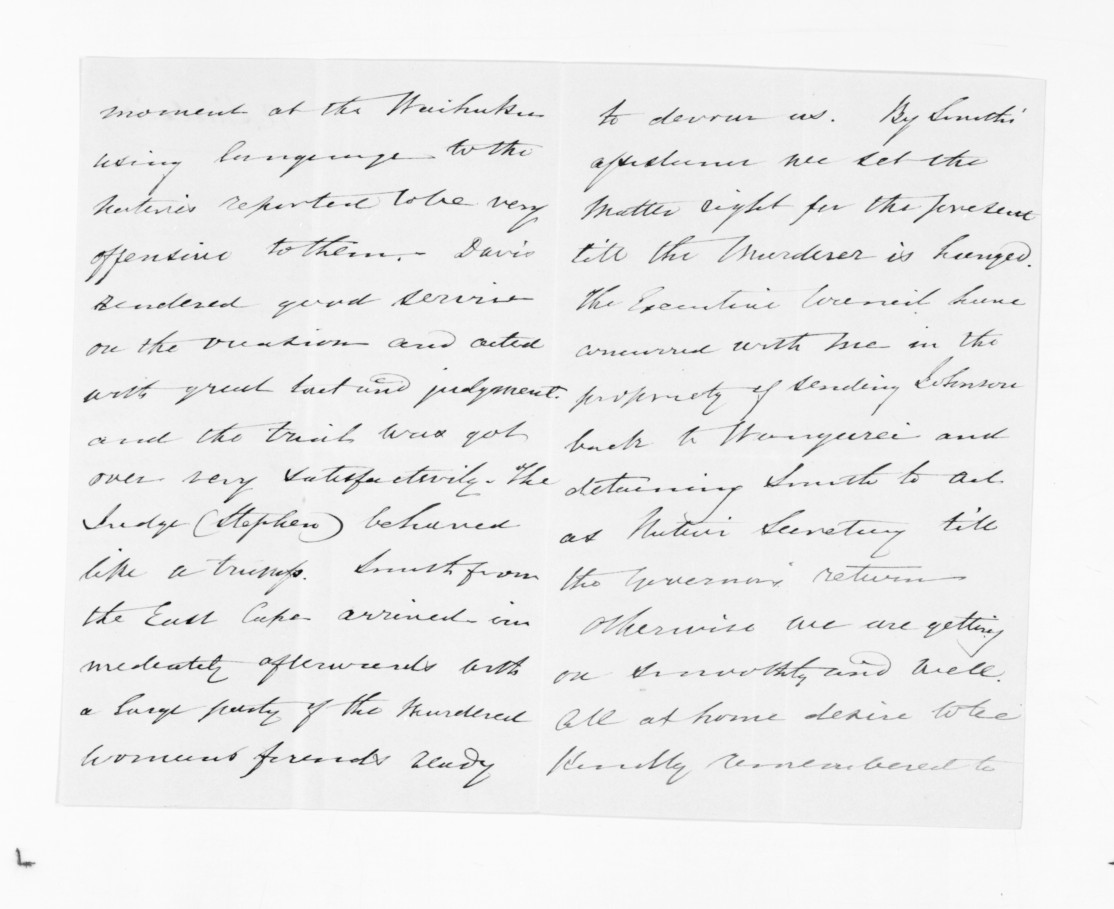 moment at the Waihuku
using language to the
natives reported to be very
offensive to them. - Davis
rendered good service
on the occasion and acted
with great tact and judgment.
and the trial was got
over very satisfactorily - The
Judge (Stephen) behaved
like a trump. Smith from
the East Cape arrived im
mediately afterwards with
a large party of the murdered
womans friends ready
to devour us. By Smith's
assistance we set the
Matter right for the present
till the Murderer is hanged.
The Executive Council have
concurred with me in the
propriety of sending Johnson
back to Wangarei and
detaining Smith to act
as Native Secretary till
the Governor's return
Otherwise we are getting
on smoothly and well.
All at home desire to be
Kindly remembered to